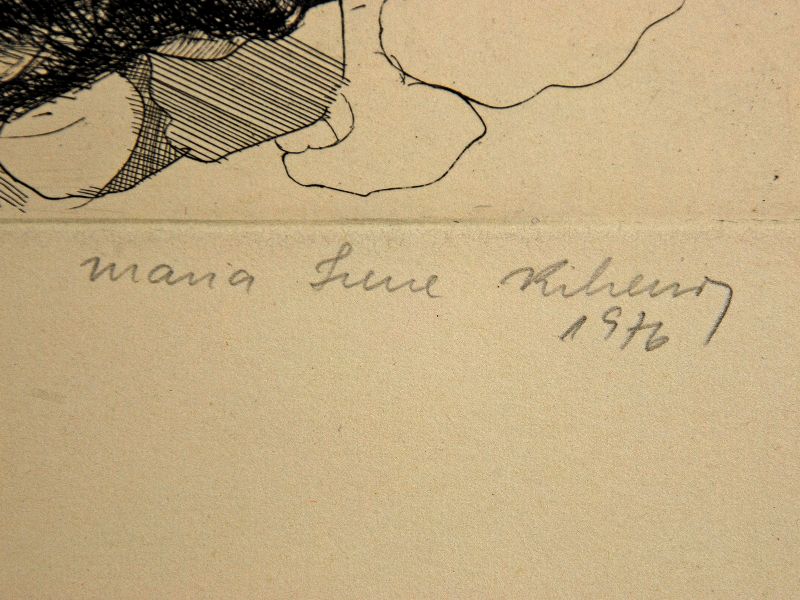 Maria Irene Ribeiro
1976